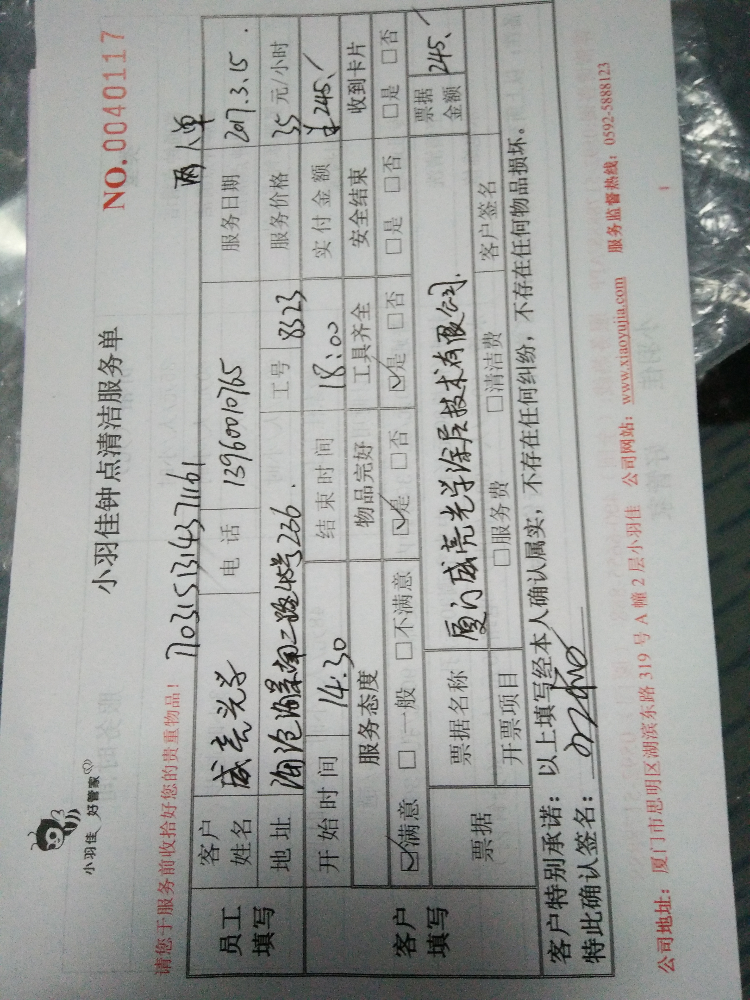 小羽佳 好管家
小羽佳钟点清洁服务单
NO.0040117
请您于服务前收拾好您的贵重物品！
1703151314371161
两人单
员工填写
客户姓名 威亮光学 电话 13960010765 服务日期 2017.3.15.
地址 海沧 南二路45号236. 工号 8323 服务价格 35元/小时
客户填写
开始时间 14:30 结束时间 18:00 实付金额 ¥245.
服务态度 物品完好 工具齐全 安全结束 收到卡片
☑满意 □一般 □不满意 ☑是 □否 ☑是 □否 □是 □否 □是 □否
票据 票据名称 厦门威亮光学涂层技术有限公司. 票据金额 245.
开票项目 □服务费 □清洁费 客户签名
客户特别承诺：以上填写经本人确认属实，不存在任何纠纷，不存在任何物品损坏。
特此确认签名：
公司地址：厦门市思明区湖滨东路319号A幢2层小羽佳 公司网站：www.xiaoyujia.com 服务监督热线：0592-5888123